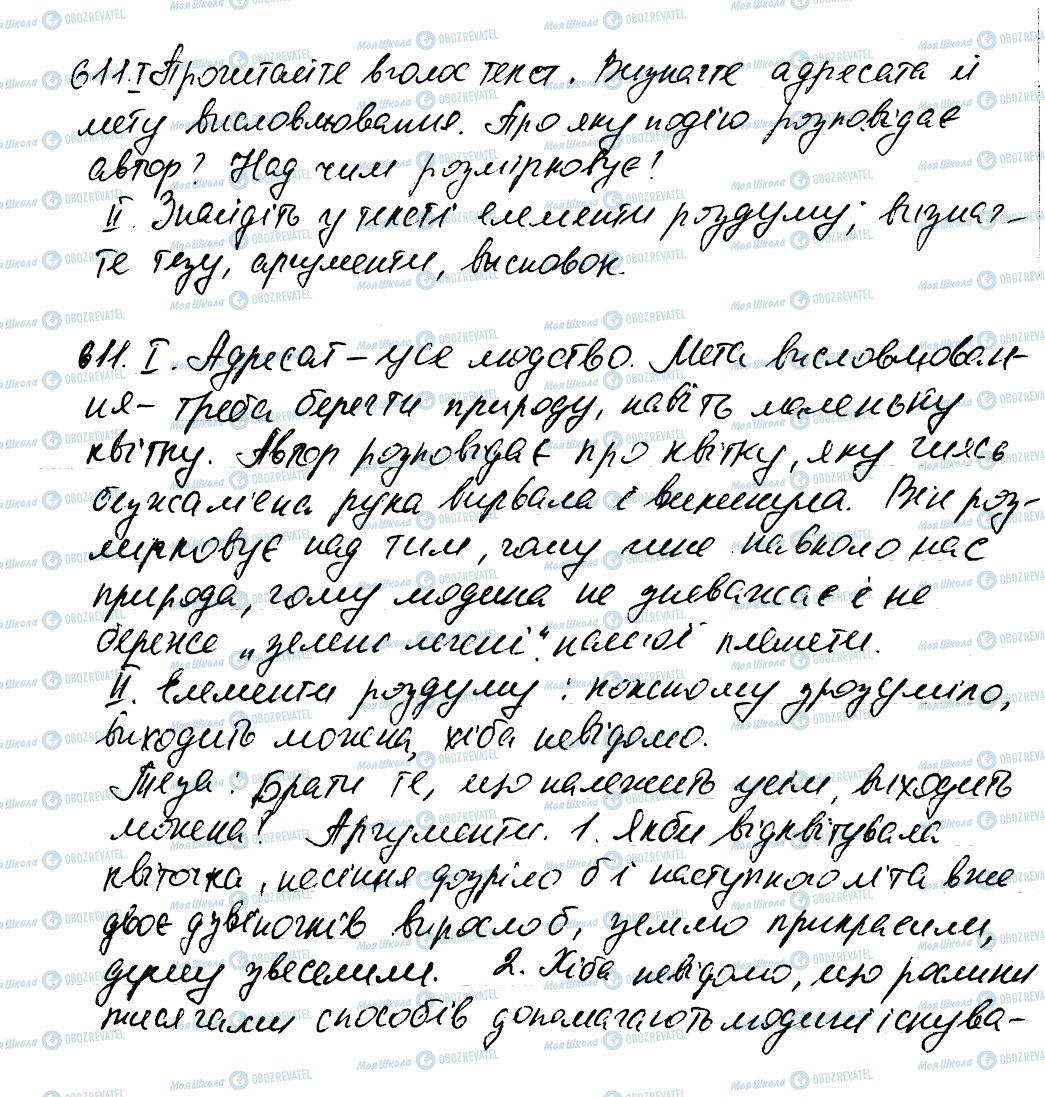 611.I Прочитайте вголос текст. Визначте адресата й
мету висловлювання. Про яку подію розповідає
автор? Над чим розмірковує?
II. Знайдіть у тексті елементи роздуму; визнач-
те тезу, аргументи, висновок.
611. I. Адресат – усе людство. Мета висловлюван-
ня – треба берегти природу, навіть маленьку
квітку. Автор розповідає про квітку, яку чиясь
бузжам'єна рука вирвала і викинула. Він роз-
мірковує над тим, чому гине навколо нас
природа, чому людина не зневажає і не
береже „зелені легені" нашої планети.
II. Елементи роздуму: кожному зрозуміло,
виходить можна, хіба невідомо.
Теза: Брати те, що належить усім, виходить
можна? Аргументи. 1. Якби відквітувала
квіточка, насіння дозріло б і наступного літа вже
двоє дзвіночків виросло б, землю прикрасили,
душу звеселили. 2. Хіба невідомо, що рослини
тисячами способів допомагають людині існува-